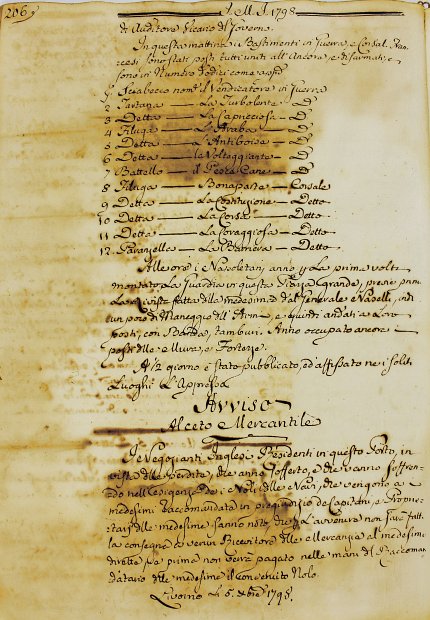 206
1798
di Auditore Vicario di Governo.
In questa mattina i Bastimenti in Guerra, e Corsal. Fran
cesi sono stati posti tutti uniti all'Ancora, e disarmati, e
sono in Numero dodici come
1 Sciabecco nom.° il Vendicatore in Guerra
2 Tartana — La Turbolente — D
3 Detta — La Capricciosa — D
4 Filuga — L'Araba — D
5 Detta — L'Antiboise — D
6 Detta — la Volteggiante — D
7 Battello — il Pesce Cane — D
8 Filuga — Bonaparte — Corsale
9 Detta — La Costituzione — Detto
10 Detta — La Corsa — Detto
11 Detta — La Coraggiosa — Detto
12. Paranzella — La — Detto
Alle ore i Napoletani anno p. La prima volta
montato La Guardia in questa Piazza Grande, previo prima
La rivista fatta dalla medesima dal Generale Naselli, indi
un poco di Maneggio dell' Armi e quindi andati a Loro
posti, con Banda, tamburi. Anno occupato ancora i
posti delle e Fortezze.
A 1/2 giorno è stato pubblicato, ed affissato nei soliti
Luoghi L'Apresso
Avviso
Al Ceto Mercantile
I Negozianti Inglesi Residenti in questo Porto, in
vista delle perdite, che anno sofferto, e che vanno soffren
do nell'esigenza de i Noli delle Navi, che vengono a
medesimi Raccomandate in pregiudizio de Capitani, e Proprie
tarj delle medesime, fanno noto, che p. L'avvenire non farà fatta
la consegna a verun Ricevitore delle Mercanzie al medesimo
dirette se prima non verrà pagato nelle mani del Raccoman
datario delle medesime il Convenuto Nolo.
Livorno Li 5. Xbre 1798.